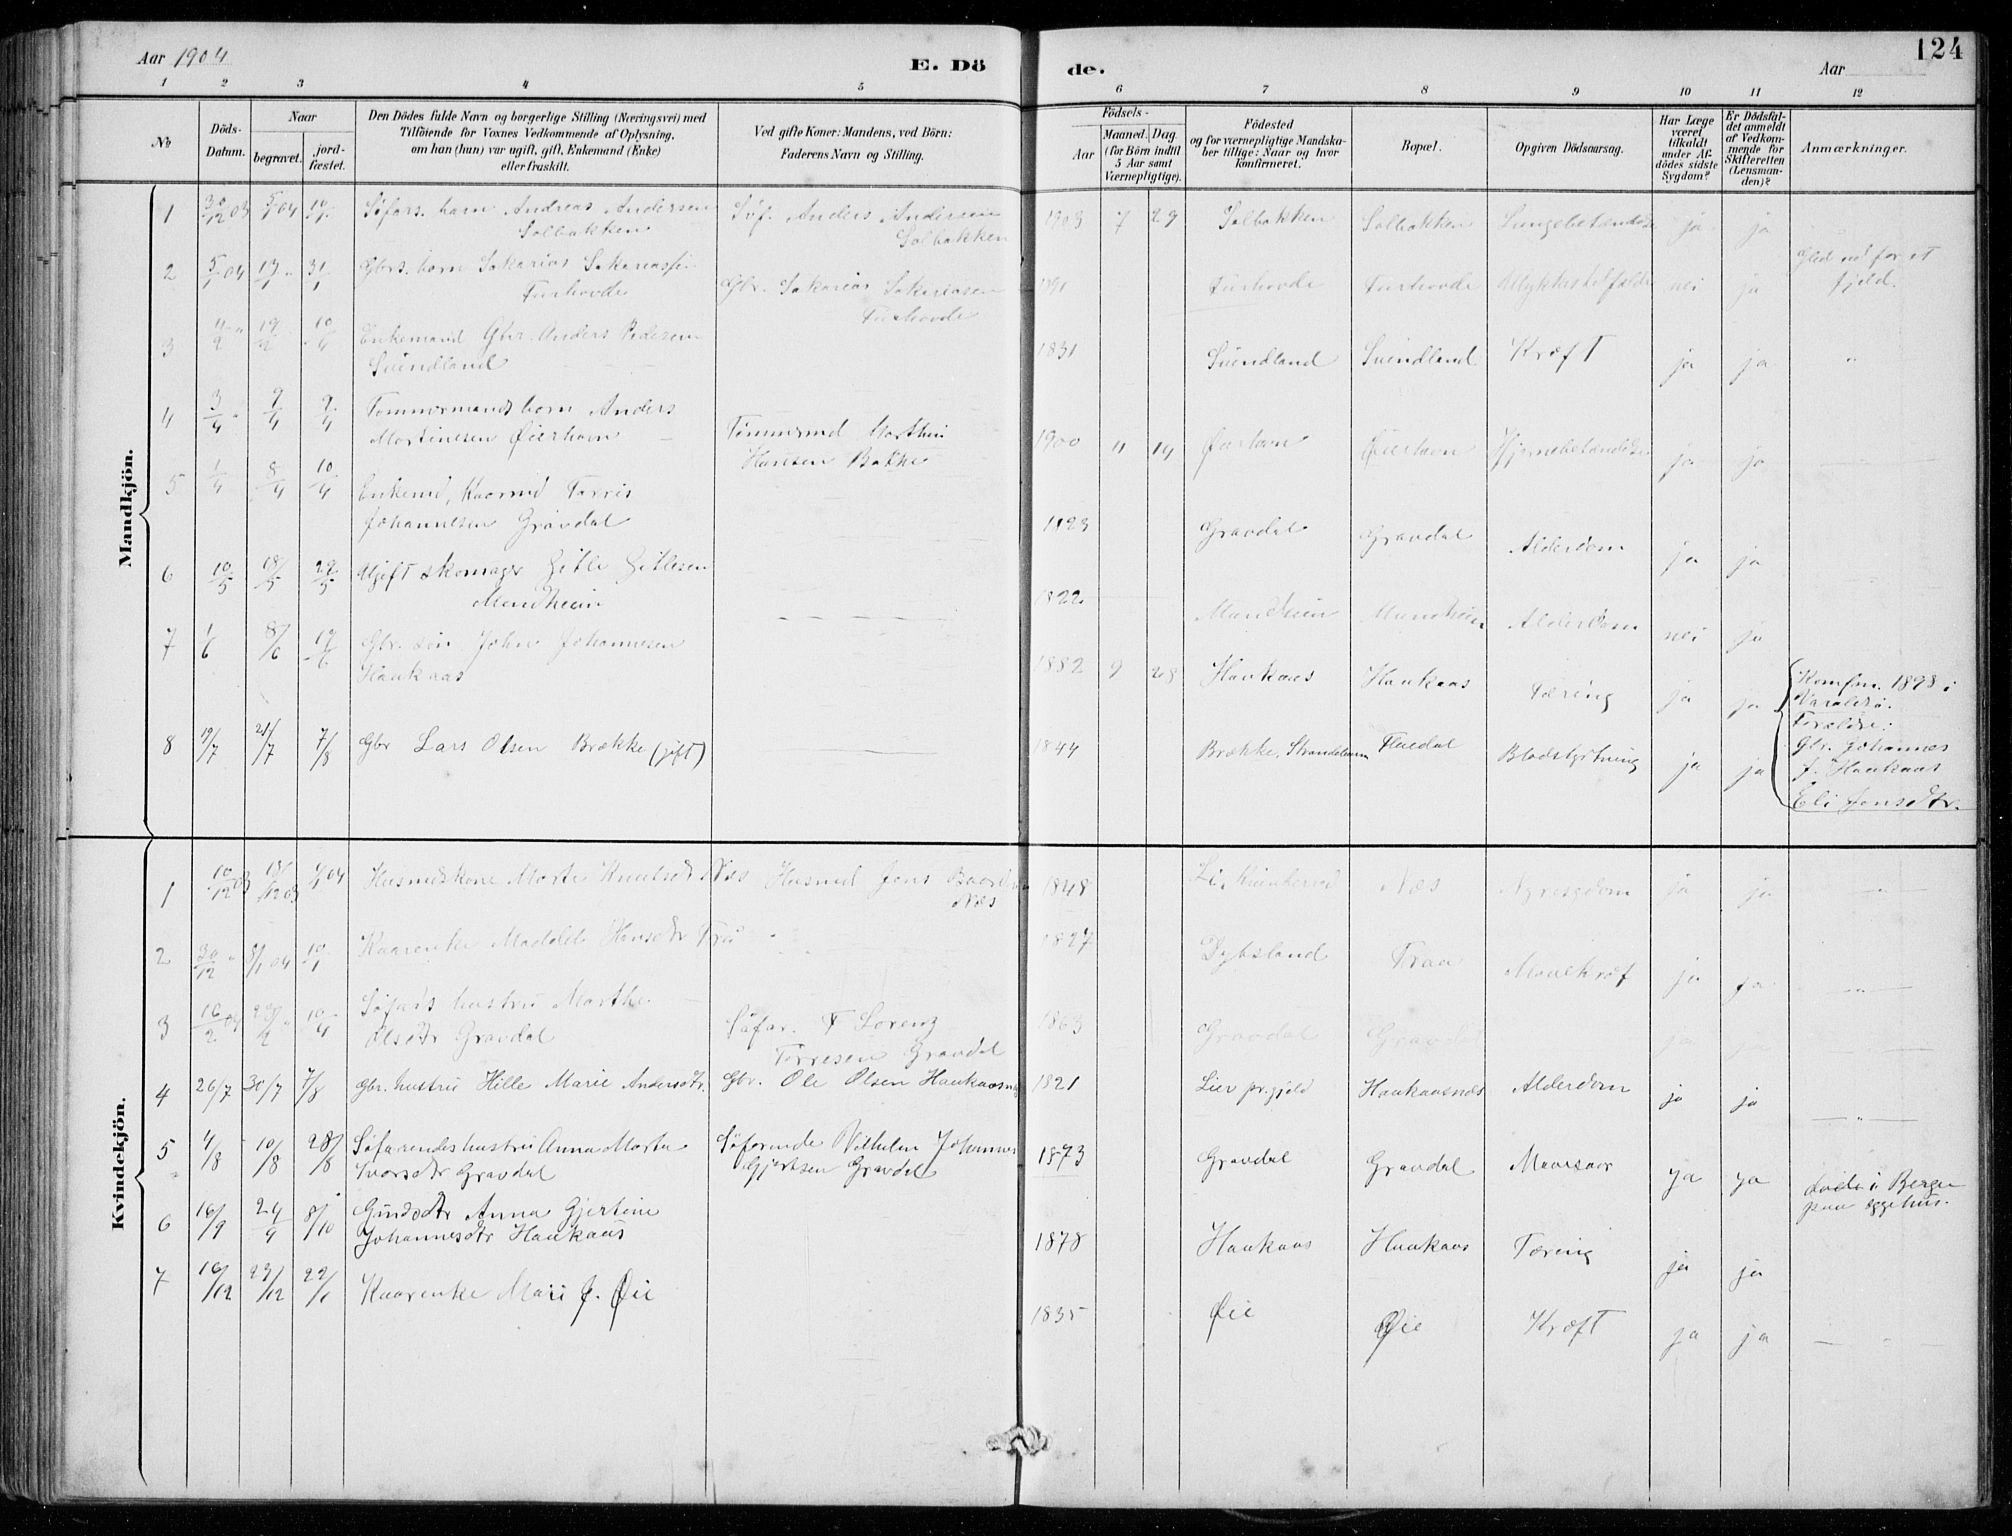 Aar 1904
E. Dö
de.
Aar
124
1 2 3 4 5 6 7 8 9 10 11 12
No
Döds-Datum.
Naar
begravet.
jord-fæstet.
Den Dödes fulde Navn og borgerlige Stilling (Næringsvei) med
Tilföiende for Voxnes Vedkommende af Oplysning,
om han (hun) var ugift, gift, Enkemand (Enke)
eller fraskilt.
Ved gifte Koner: Mandens, ved Börn:
Faderens Navn og Stilling.
Födsels-
Aar
Maaned. Dag.
(for Börn indtil
5 Aar samt
Værnepligtige).
Födested
og for værnepligtige Mandska-
ber tillige: Naar og hvor
konfirmeret.
Bopæl.
Opgiven Dödsaarsag.
Har Læge
været
tilkaldt
under Af-
dödes sidste
Sygdom?
Er Dödsfal-
det anmeldt
af Vedkom-
mende for
Skifteretten
(Lensman-
den)?
Anmærkninger.
Mandkjön.
1 30/12 03 5/1 04 10/1 Söfars. barn Andreas Andersen Söf. Anders Andersen 1903 7 29 Solbakken Solbakken Lungebetændelse ja ja
Solbakken Solbakken
2 5/1 04 13/1 " 31/1 Gbrs. barn Sakarias Sakariassen Gbr. Sakarias Sakariasen 1891 Furhovde Furhovde Ulykkestilfælde nei ja Gled ud for et
Furhovde Furhovde fjeld.
3 4/2 " 19/2 10/4 Enkemand Gbr. Anders Pedersen 1831 Svindland Svindland Kræft ja ja "
Svindland
4 3/4 " 9/4 9/4 Tømmermands barn Anders Tømmermd Marthin 1900 11 19 Øierhavn Øierhavn Hjernebetændelse ja ja
Martinesen Øierhavn Hansen Bakke
5 1/4 8/4 10/4 Enkemd, Kaarmd Torris 1823 Gravdal Gravdal Alderdom ja ja
Johannesen Gravdal
6 10/5 18/5 29/5 Ugift skomager Gitle Gitlesen 1822 Mundheim Mundheim Alderdom nei ja
Mundheim
7 1/6 8/6 19/6 Gbr. søn John Johannesen 1882 9 28 Haukaas Haukaas Tæring ja ja Komfm. 1898 i
Haukaas Varaldsö.
Forældre:
Gbr. Johannes
J. Haukaas
Eli Jonsdtr.
8 19/7 21/7 7/8 Gbr Lars Olsen Brække (gift) 1844 Brække, Strandebarm Fluedal Blodstyrtning ja ja
Kvindekjön.
1 10/12 03 18/12 03 1/1 04 Husmdskone Marta Knutsdtr Næs Husmd Jens Baard 1848 Li, Kvinherred Næs Nyresygdom ja ja "
Næs
2 30/12 " 8/1 04 10/1 Kaarenke Madele Hansdtr 1827 Dybsland Traa Mavekræf ja ja "
3 16/2 04 23/2 " 10/4 Söfars hustru Marthe Söfar. T Lorenz 1863 Gravdal Gravdal
Olsdtr Gravdal Torresen Gravdal
4 26/7 30/7 7/8 Gbr. hustru Hille Marie Andersdtr. Gbr. Ole Olsen Haukaasnes 1821 Lier pr.gjeld Haukaasnæs Alderdom ja ja "
5 4/8 10/8 28/8 Söfarendes hustru Anna Marta Söfarende Vilhelm Johannes 1873 Gravdal Gravdal Mavesaar ja ja døde i Bergen
Ivarsdtr Gravdal Gjertsen Gravdal paa sygehus.
6 16/9 24/9 8/10 Gaardsdtr Anna Gjertine 1878 Haukaas Haukaas Tæring ja ja
Johannesdtr Haukaas
7 16/12 23/12 22/1 Kaarenke Mari J. Øie 1835 Øie Øie Kræft ja ja